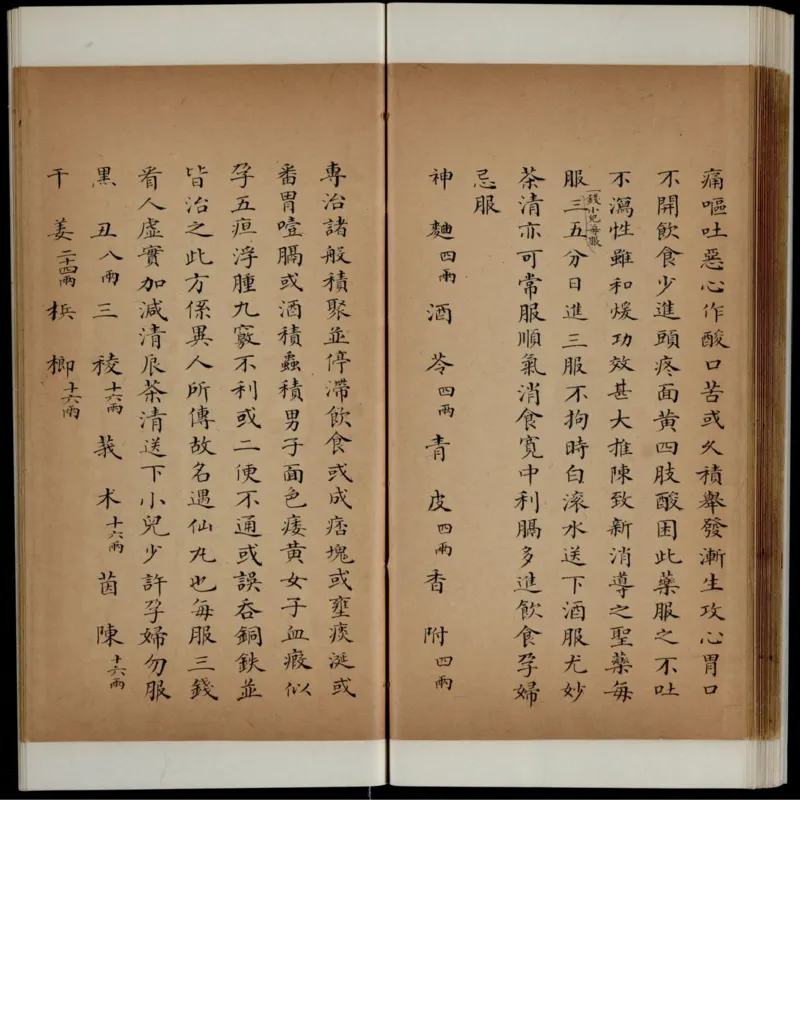 痛嘔吐惡心作酸口苦或久積舉發漸生攻心胃口
不開飲食少進頭疼面黃四肢酸困此藥服之不吐
不瀉性雖和煖功效甚大推陳致新消導之聖藥每
服一錢小兒每服三五分日進三服不拘時白滾水送下酒服尤妙
茶清亦可常服順氣消食寬中利膈多進飲食孕婦
忌服
神麯四兩酒芩四兩青皮四兩香附四兩
專治諸般積聚並停滯飲食或成痞塊或壅痰涎或
番胃噎膈或酒積蟲積男子面色痿黃女子血瘕似
孕五疸浮腫九竅不利或二便不通或誤吞銅鉄並
皆治之此方係異人所傳故名遇仙丸也每服三錢
看人虛實加減清辰茶清送下小兒少許孕婦勿服
黑丑八兩三稜十六兩莪术十六兩茵陳十六兩
干姜二十四兩梹榔十六兩